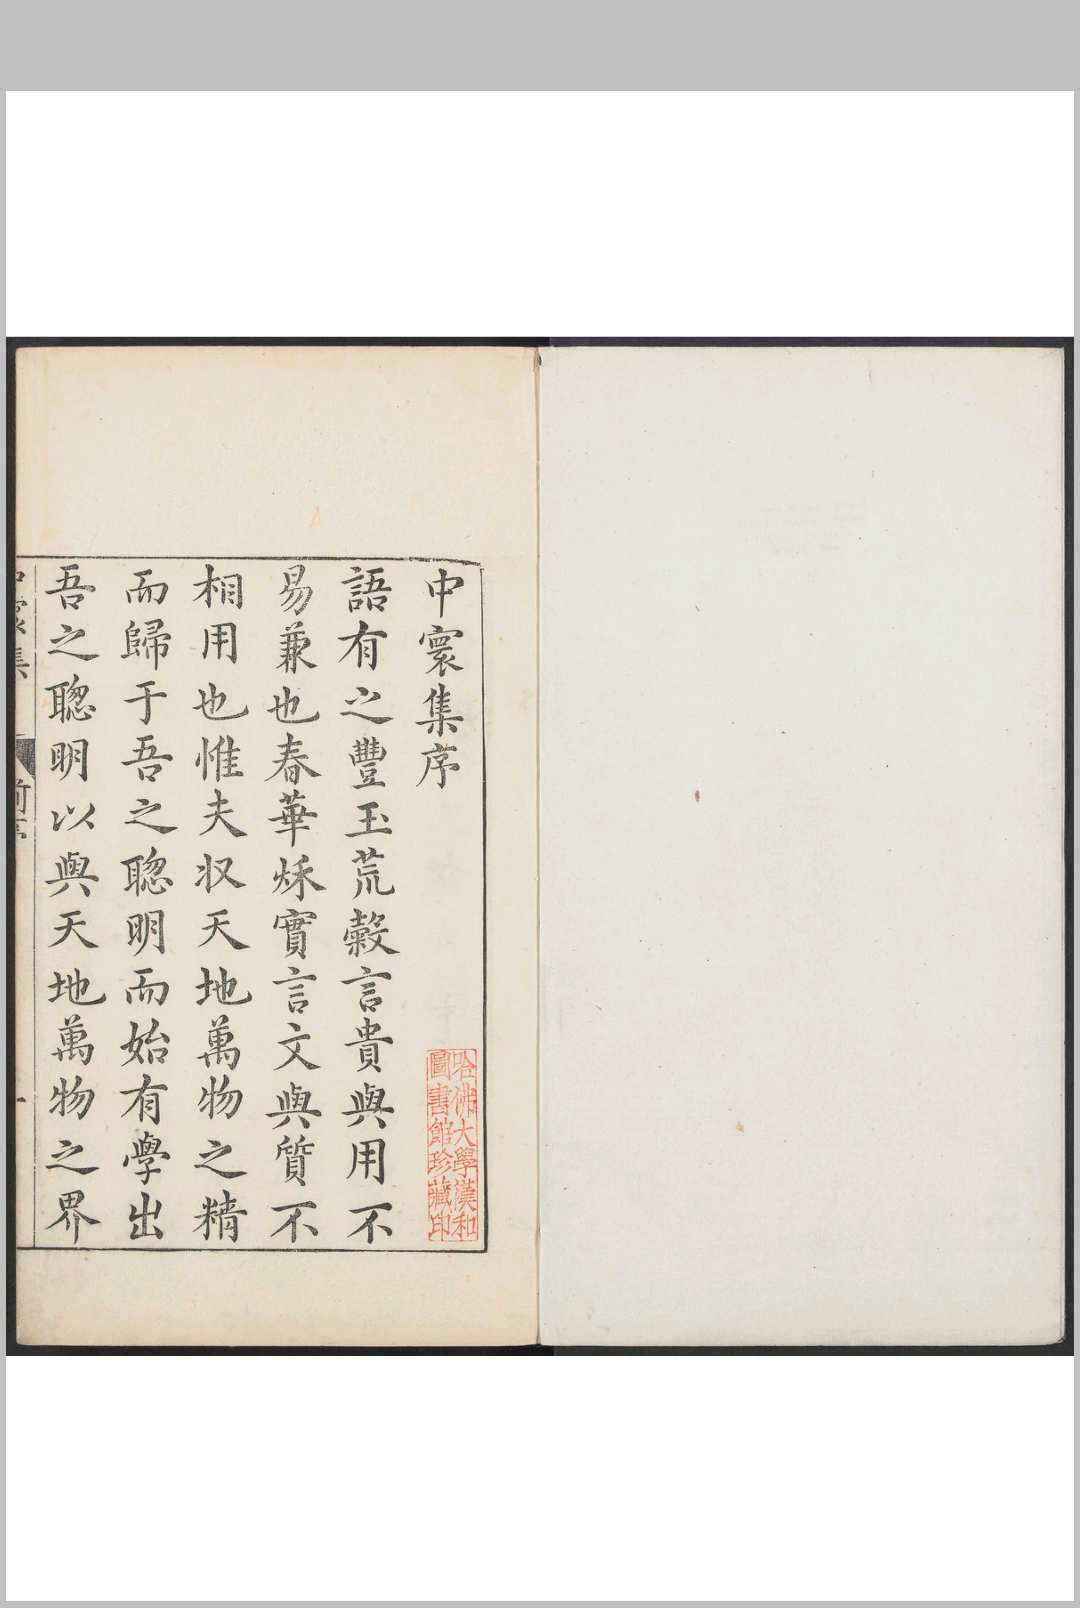 中寰集序
語有之豐玉荒穀言貴與用不
易兼也春華秌實言文與質不
相用也惟夫収天地萬物之精
而歸于吾之聰明而始有學出
吾之聰明以與天地萬物之界
中寰集 前序 一
哈佛大學漢和
圖書館珍藏印